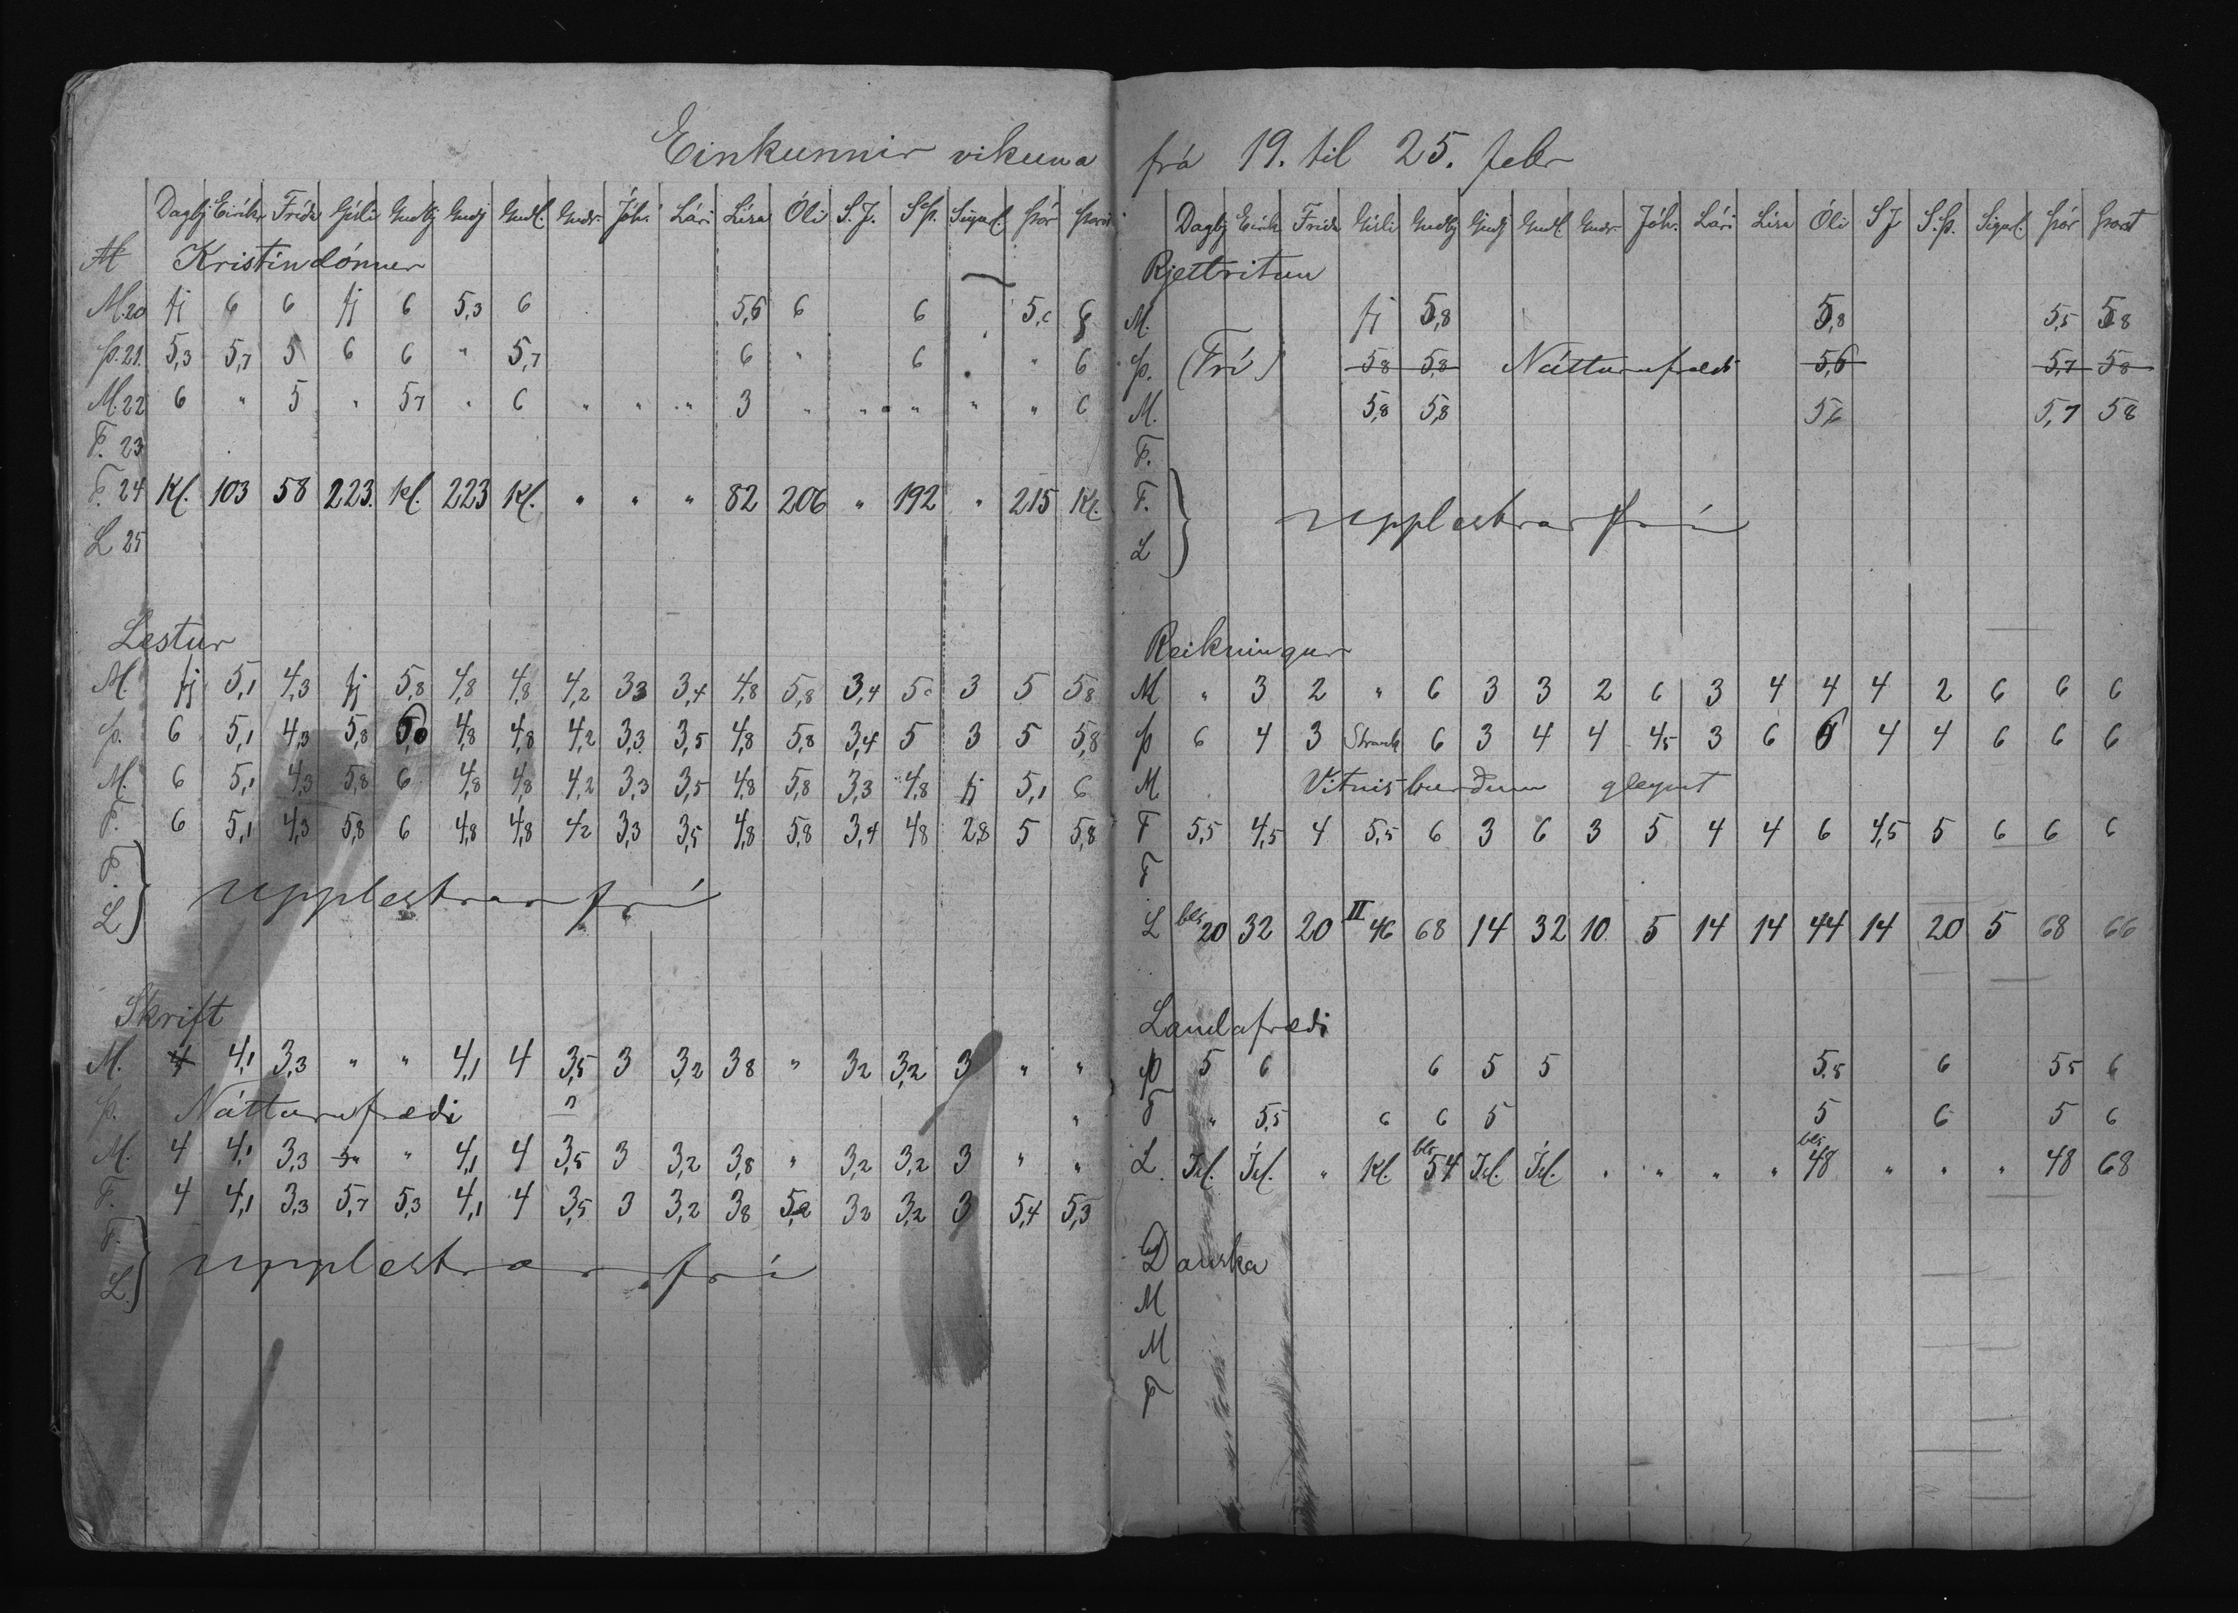 Einkunnir vikuna
Dagbj Eirík Frída Gísli Gudbj Gudj Gudl. Gudr. Jóh. Lári Lísa Óli S. J. S. Þ. Sigurl. Þór
Kristindómur
M. 20 fj 6 6 fj 6 5,3 6 5,6 6 6
Þ. 21. 5,3 5,7 5 6 6 " 5,7 6 " 6 " 6
M. 22 6 " 5 " 57 " 6 " " " 3 " " " " " 6
F. 23
F. 24 Kl. 103 58 223. Kl. 223 Kl. " " " 82 206 " 192 " 215 Kl.
L 25
Lestur
M. fj 5,1 4,3 fj 5,8 4,8 4,8 4,2 33 3,4 4,8 5,8 3,4 5 3 5 58
Þ. 6 5,1 4,3 5,8 4,8 4,8 4,2 3,3 3,5 4,8 5,8 3,4 5 3 5 5,8
M. 6 5,1 4,3 5,8 6 4,8 4,8 4,2 3,3 3,5 4,8 5,8 3,3 4,8 fj 5,1 6
F. 6 5,1 4,3 5,8 6 4,8 4,8 42 3,3 3,5 4,8 5,8 3,4 48 2,8 5 5,8
F.
L } Upplestrarfrí
Skrift
M. 4 4,1 3,3 " " 4,1 4 3,5 3 3,2 38 " 32 3,2 3 " "
Þ. Nátturufrædi "
M. 4 4,1 3,3 " 4,1 4 3,5 3 3,2 3,8 " 3,2 3,2 3 " "
F. 4 4,1 3,3 5,7 5,3 4,1 4 3,5 3 3,2 38 32 3,2 3 5,4 5,3
F.
L. } Upplestrarfrí
frá 19. til 25. febr
Dagbj Eirík Frída Gísli Gudbj Gudj Gudl Gudr. Jóh. Lári Lísa Óli S J S. Þ. Sigurl. Þór
Rjettritun
M. fj 5,8 5,8 5,5 58
Þ. (Frí) 58 5,8 Nátturufrædi 5,6 5,7 58
M. 5,8 5,8 5,6 5,7 58
F.
F.
L } Upplestrarfrí
Reikningur
M " 3 2 " 6 3 3 2 6 3 4 4 4 2 6 6 6
Þ 6 4 3 6 3 4 4 4,5 3 6 6 4 4 6 6 6
M Vitnisburdum gleymt
F 5,5 4,5 4 5,5 6 3 6 3 5 4 4 6 4,5 5 6 6 6
F
L bls 20 32 20 II 46 68 14 32 10 5 14 14 44 14 20 5 68 66
Landafrædi
Þ 5 6 6 5 5 5,5 6 55 6
F " 5,5 6 6 5 5 6 5 6
L. Ísl. Ísl. " Kl. bls 54 Ísl. Ísl. " " " " bls 48 " " " 48 68
Danska
M
M
F